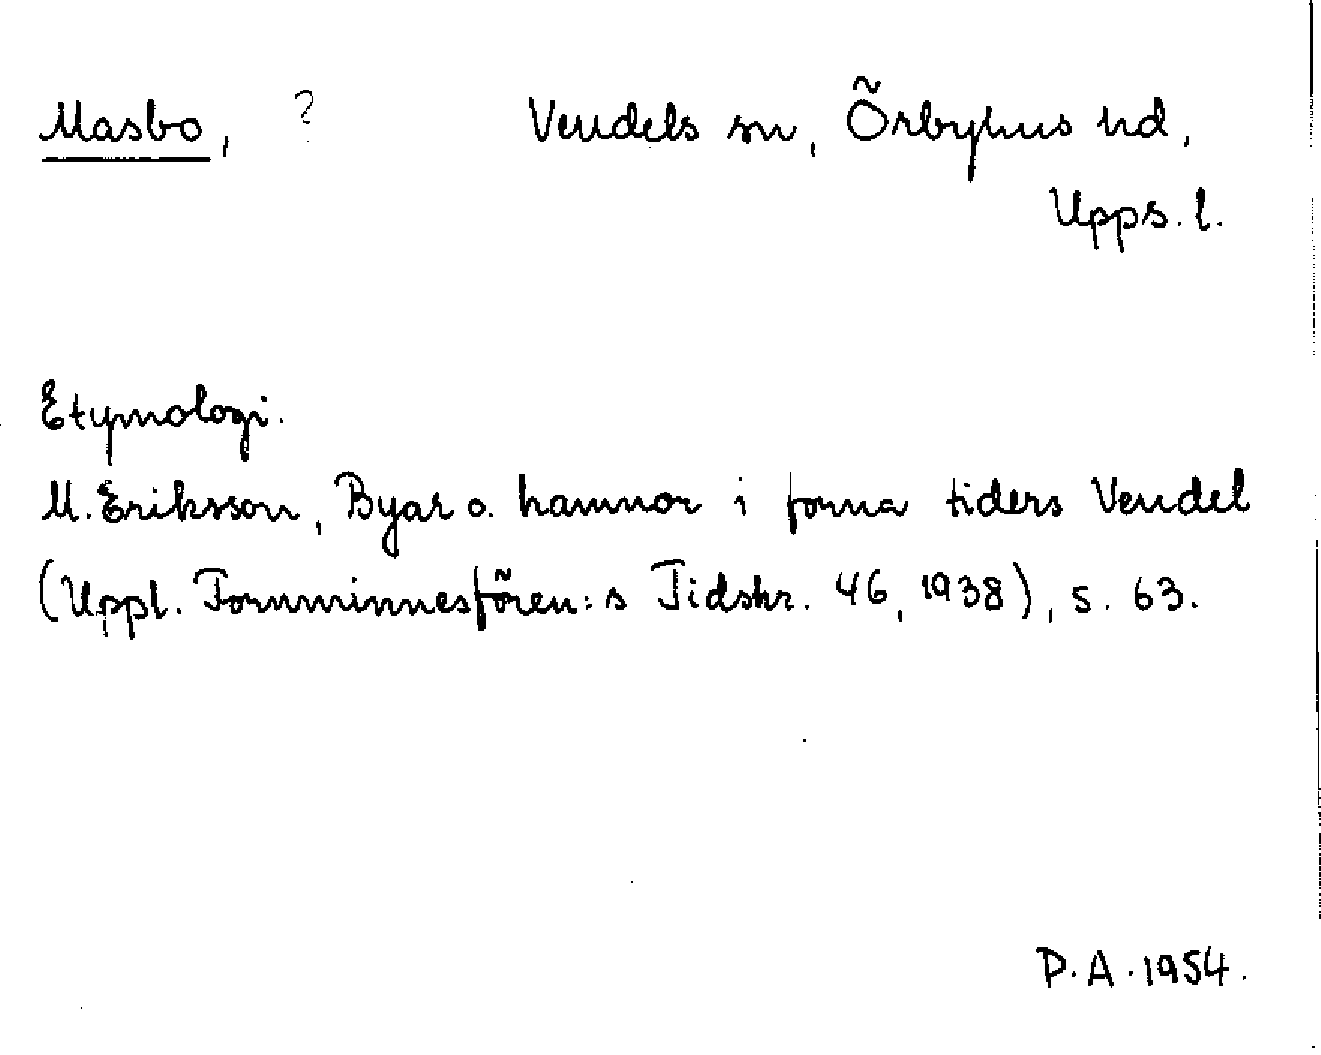 Masbo, ? Vendels sn, Örbyhus hd,
Upps. l.
Etymologi.
M. Eriksson, Byar o. hamnor i forna tiders Vendel
(Uppl. Fornminnesfören:s Tidskr. 46, 1938), s. 63.
P.A. 1954.